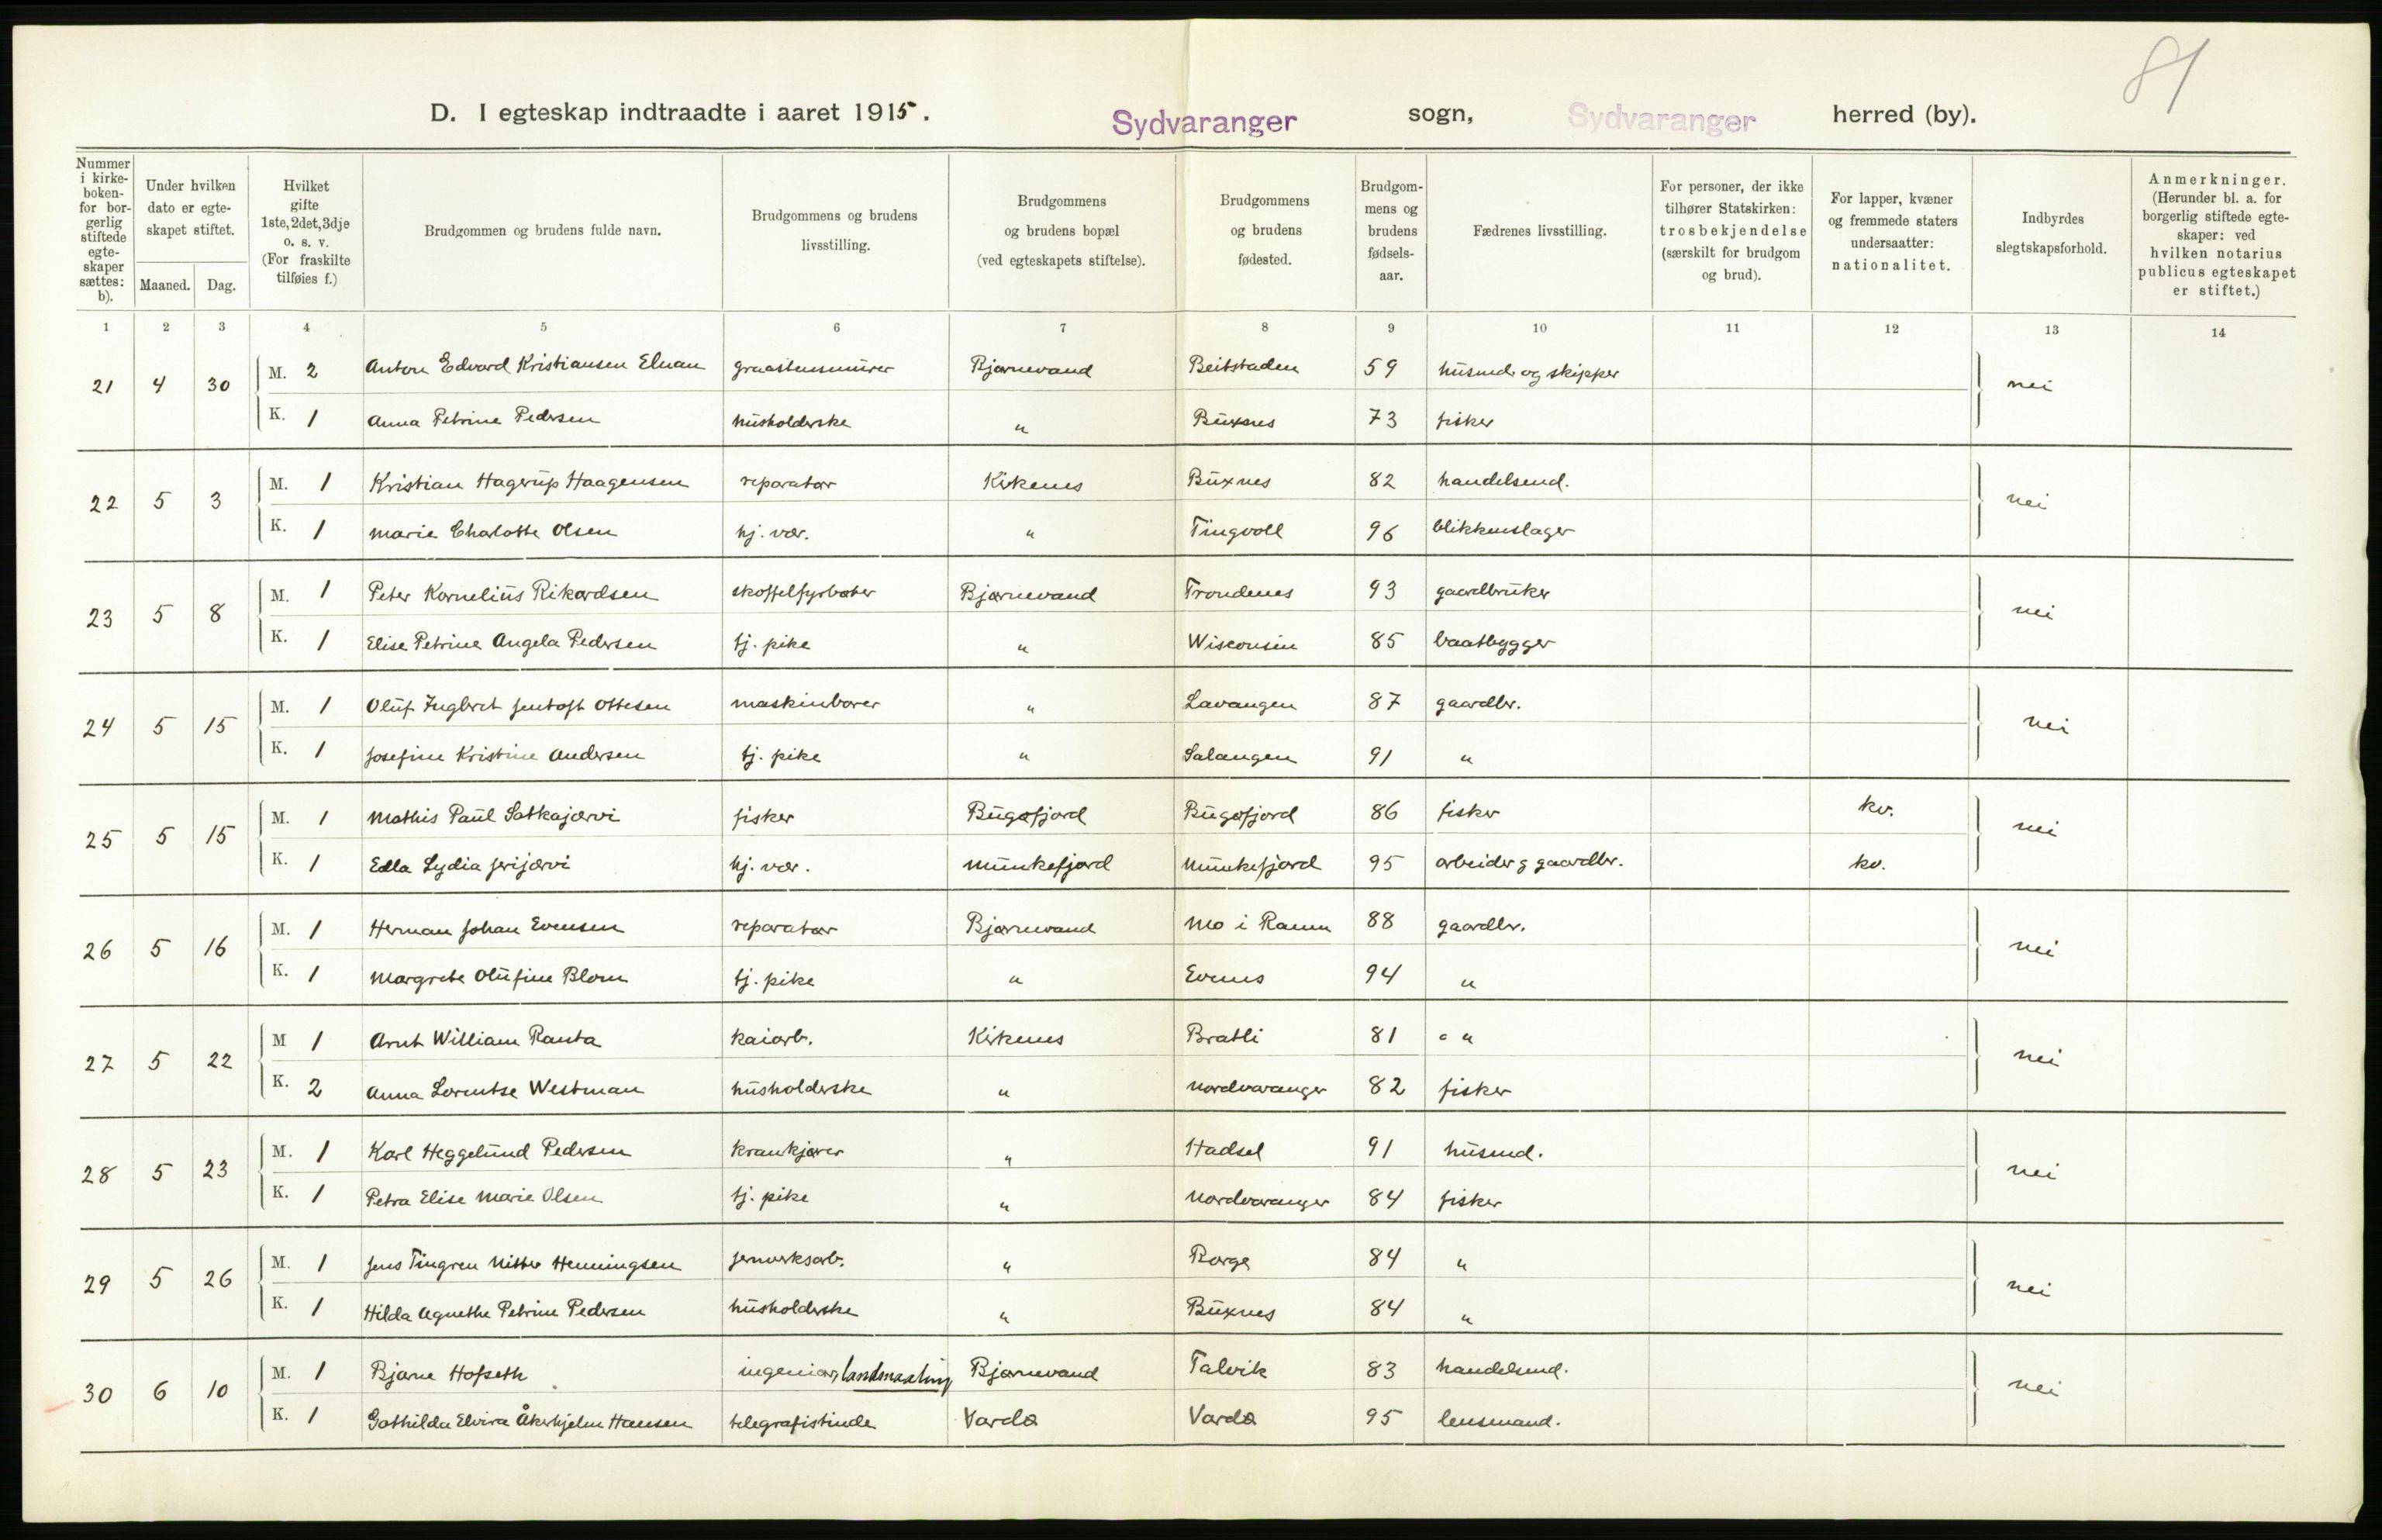 81
D. I egteskap indtraadte i aaret 1915. Sydvaranger sogn, Sydvaranger herred (by).
Nummer i kirkeboken- for borgerlig stiftede egteskaper sættes: b). | Under hvilken dato er egteskapet stiftet. Maaned. Dag. | Hvilket gifte 1ste, 2det, 3dje o. s. v. (For fraskilte tilføies f.) | Brudgommen og brudens fulde navn. | Brudgommens og brudens livsstilling. | Brudgommens og brudens bopæl (ved egteskapets stiftelse). | Brudgommens og brudens fødested. | Brudgommens og brudens fødselsaar. | Fædrenes livsstilling. | For personer, der ikke tilhører Statskirken: trosbekjendelse (særskilt for brudgom og brud). | For lapper, kvæner og fremmede staters undersaatter: nationalitet. | Indbyrdes slegtskapsforhold. | Anmerkninger. (Herunder bl. a. for borgerlig stiftede egteskaper: ved hvilken notarius publicus egteskapet er stiftet.)
1 2 3 4 5 6 7 8 9 10 11 12 13 14
21 4 30 M. 2 Anton Edvard Kristiansen Elnan graastensmurer Bjørnevand Beitstaden 59 husmd. og skipper nei
K. 1 Anna Petrine Pedersen husholderske " Buxnes 73 fisker
22 5 3 M. 1 Kristian Hagerup Haagensen reparatør Kirkenes Buxnes 82 handelsmd. nei
K. 1 Marie Charlotte Olsen hj. vær. " Tingvoll 96 blikkenslager
23 5 8 M. 1 Peter Kornelius Rikardsen skoffelfyrbøter Bjørnevand Trondenes 93 gaardbruker nei
K. 1 Elise Petrine Angela Pedersen tj. pike " Wisconsin 85 baatbygger
24 5 15 M. 1 Oluf Ingbret Jentoft Ottesen maskinborer " Lavangen 87 gaardbr. nei
K. 1 Josefine Kristine Andersen tj. pike " Salangen 91 "
25 5 15 M. 1 Mathis Paul Satkajærvi fisker Bugøfjord Bugøfjord 86 fisker kv. nei
K. 1 Edla Lydia Jerijærvi hj. vær. Munkefjord Munkefjord 95 arbeider g gaardbr. kv.
26 5 16 M. 1 Herman Johan Evensen reparatør Bjørnevand Mo i Ranen 88 gaardbr. nei
K. 1 Margrete Olufine Blom tj. pike " Evenes 94 "
27 5 22 M 1 Arnt William Ranta kaiarb. Kirkenes Bratli 81 " nei
K. 2 Anna Lorentse Westman husholderske " Nordvaranger 82 fisker
28 5 23 M. 1 Karl Heggelund Pedersen krankjører " Hadsel 91 husmd. nei
K. 1 Petra Elise Marie Olsen tj. pike " Nordvaranger 84 fisker
29 5 26 M. 1 Jens Tingren Nitter Henningsen jernverksarb. " Borge 84 " nei
K. 1 Hilda Agnethe Petrine Pedersen husholderske " Buxnes 84 "
30 6 10 M. 1 Bjarne Hofseth ingeniør, landmaaling Bjørnevand Talvik 83 handelsmd. nei
K. 1 Gothilda Elvira Åkerhjelm Hansen telegrafistinde Vardø Vardø 95 lensmand.